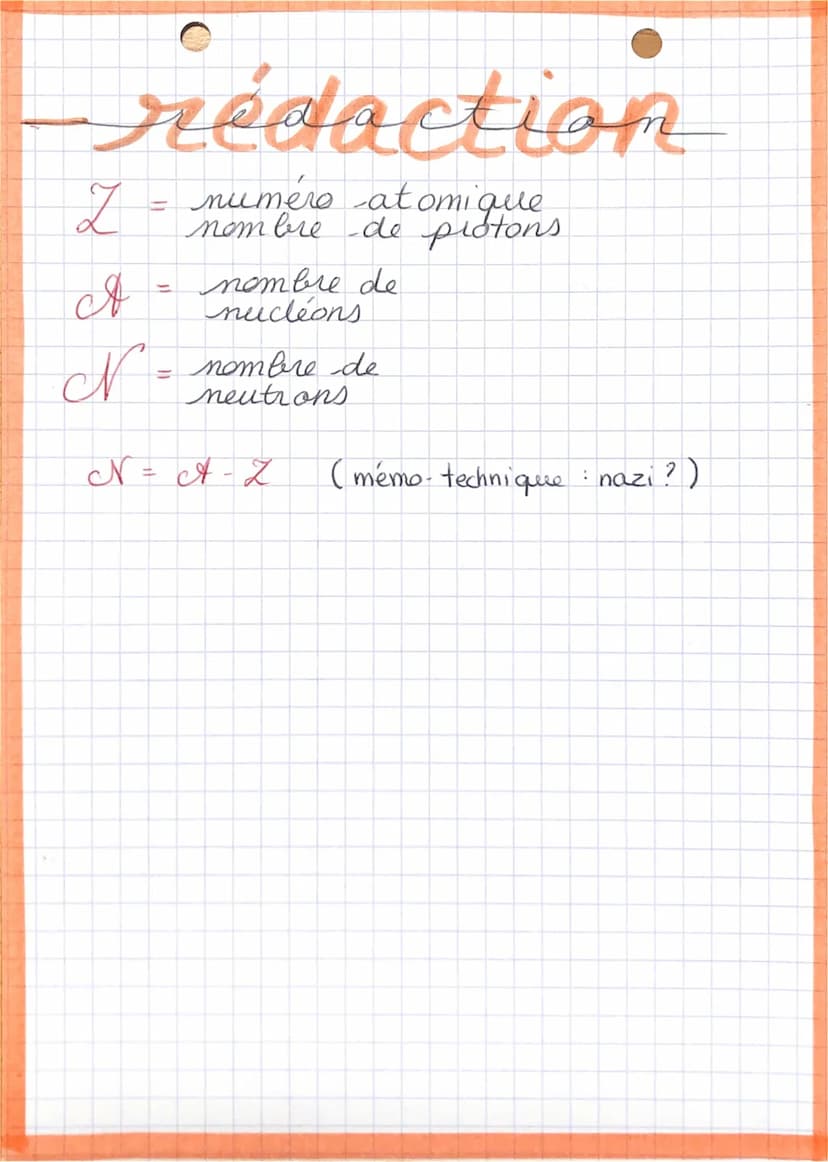 rédaction
Z = numéro atomique
nombre de protons
A = nombre de
nucléons
N = nombre de
neutrons
N = A - Z (mémo-technique : nazi ?)